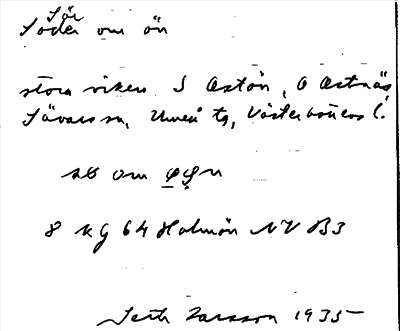 Sör
Söder om ön
stora viken S Ostön, O Ostnäs,
Sävars sn, Umeå tg, Västerbottens l.
NB om
8 KG 64 Holmön NV B3
Larsson 1935